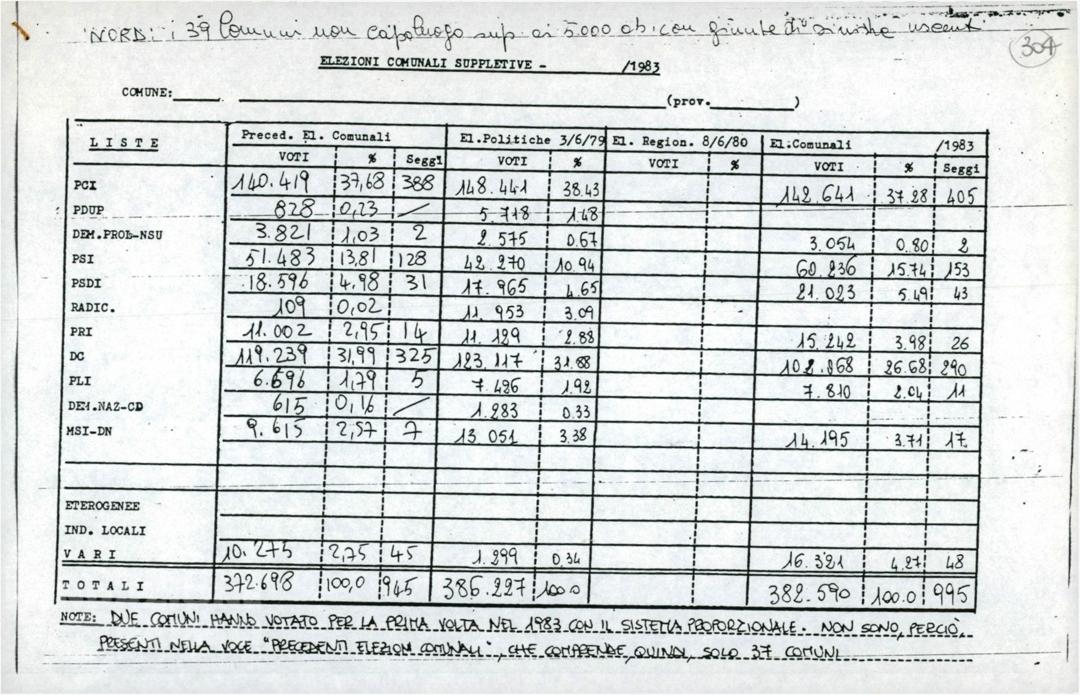 NORD: i 39 Comuni non capoluogo sup. ai 5.000 ab. con giunte di sinistra uscenti
304
ELEZIONI COMUNALI SUPPLETIVE - /1983
COMUNE: (prov. )
LISTE Preced. El. Comunali El.Politiche 3/6/79 El. Region. 8/6/80 El.Comunali /1983
VOTI % Seggi VOTI % VOTI % VOTI % Seggi
PCI 140.419 37,68 388 148.441 38.43 142.641 37.28 405
PDUP 828 0,23 / 5.718 1.48
DEM.PROL-NSU 3.821 1,03 2 2.575 0.67 3.054 0.80 2
PSI 51.483 13,81 128 42.270 10.94 60.236 15.74 153
PSDI 18.596 4,98 31 17.965 4.65 21.023 5.49 43
RADIC. 109 0,02 11.953 3.09
PRI 11.002 2,95 14 11.129 2.88 15.242 3.98 26
DC 119.239 31,99 325 123.117 31.88 102.068 26.68 290
PLI 6.696 1,79 5 7.426 1.92 7.810 2.04 11
DEM.NAZ-CD 615 0,16 / 1.283 0.33
MSI-DN 9.615 2,57 7 13.051 3.38 14.195 3.71 17
ETEROGENEE
IND. LOCALI
VARI 10.275 2,75 45 1.299 0,34 16.321 4,27 48
TOTALI 372.698 100,0 945 386.227 100.0 382.590 100.0 995
NOTE: DUE COMUNI HANNO VOTATO PER LA PRIMA VOLTA NEL 1983 CON IL SISTEMA PROPORZIONALE. NON SONO, PERCIÒ,
PRESENTI NELLA VOCE "PRECEDENTI ELEZIONI COMUNALI", CHE COMPRENDE, QUINDI, SOLO 37 COMUNI